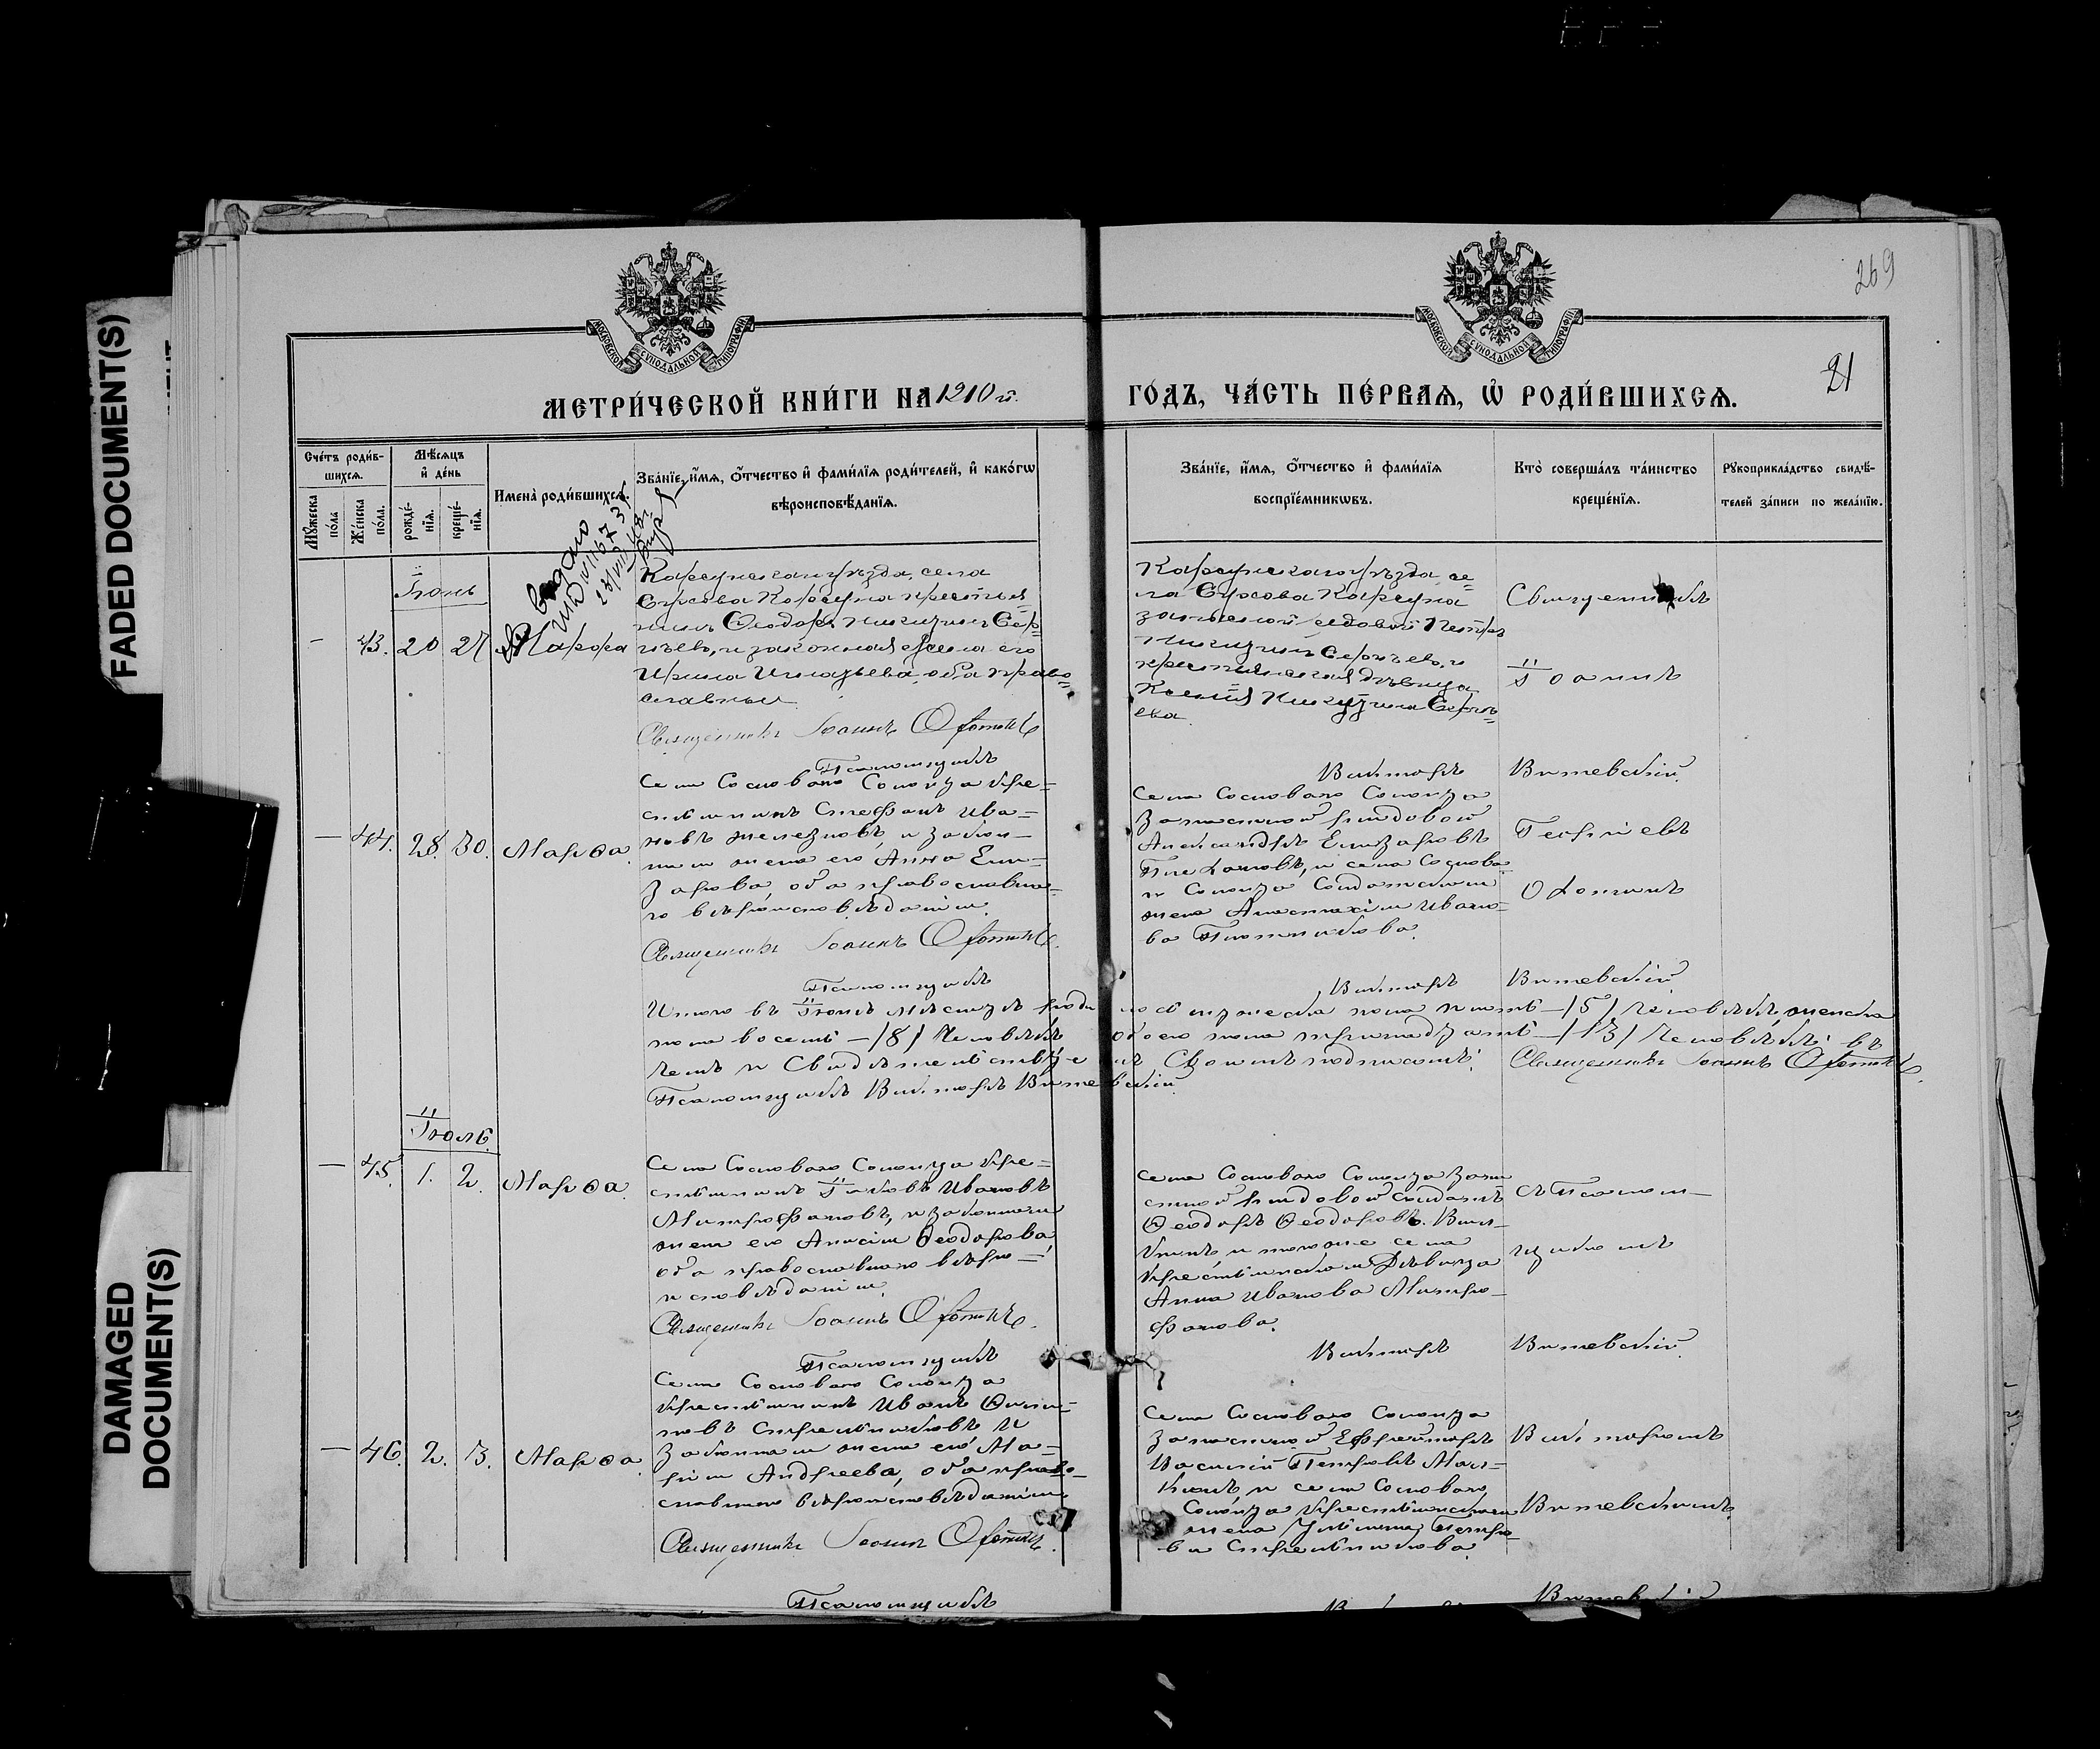 FADED DOCUMENT(S)
DAMAGED
DOCUMENT(S)
269
21
МОСКОВСКОЙ СѴНОДАЛЬНОЙ ТИПОГРАФІИ
МОСКОВСКОЙ СѴНОДАЛЬНОЙ ТИПОГРАФІИ
МЕТРИ́ЧЕСКОЙ КНИ́ГИ НА 1910 г.
ГО́ДЪ, ЧА́СТЬ ПЕ́РВАѦ, Ѡ РОДИ́ВШИХСѦ.
Сче́тъ роди́в-
шихсѧ.
Мꙋжеска
по́ла
Же́нска
по́ла.
Мѣ́сѧцъ
и҆ де́нь
рожде́-
нїѧ.
креще́-
нїѧ.
Имена̀ роди́вшихсѧ.
Зва́нїе, и҆́мѧ, ѻ҆́тчество и҆ фами́лїѧ роди́телей, и҆ како́гѡ
вѣроисповѣ́данїѧ.
Зва́нїе, и҆́мѧ, ѻ҆́тчество и҆ фами́лїѧ
воспрїе́мникѡвъ.
Кто̀ соверша́лъ та́инство
креще́нїѧ.
Рꙋкоприкла́дство свидѣ́-
телей за́писи по жела́нїю.
Іюнь
- 43. 20 27 Марфа
Карсунскаго уѣзда, села
Сурсова Карсуна крестья=
нинъ Ѳеодоръ Никитинъ Сер=
гѣевъ, и законная жена его
Ирина Игнатьева, оба право=
славные
Священникъ Іоаннъ
Псаломщикъ
Карсунскаго уѣзда, се=
ла Сурсова Карсуна
запасной рядовой Петръ
Никитинъ Сергѣевъ, и
крестьянская дѣвица
Ксенія Никитина Сергѣ=
ева.
Викторъ
Священникъ
Іоаннъ
Витевскій
— 44. 28. 30. Марѳа.
Села Сосноваго Солонца кре=
стьянинъ Стефанъ Ива=
новъ Железновъ, и закон—
ная жена его Анна Ели—
зарова, оба православна=
го вѣроисповѣданія.
Священникъ Іоаннъ
Псаломщикъ
Села Сосноваго Солонца
Запасной рядовой
Александръ Елизаровъ
и села Соснова=
го Солонца Солдатская
жена Анастасія Ивано=
ва Плотникова.
Викторъ
Георгіевъ
Витевскій
Итого въ Іюнѣ мѣсяцѣ роди лось мужеска пола пять —/5/ человѣкъ, женска
пола восемь —/8/ человѣкъ обоего пола тринадцать —/13/ человѣкъ; въ
чемъ и Свидѣтельствуе мъ Своимъ подписомъ: Священникъ Іоаннъ
Псаломщикъ Викторъ Вите вскій
Іюль
— 45. 1. 2. Марѳа.
Села Сосноваго Солонца кре=
стьянинъ Іаковъ Ивановъ
Митрофановъ, и законная
жена его Анисія Ѳеодорова
оба православнаго вѣро=
исповѣданія.
Священникъ Іоаннъ
Псаломщикъ
Села Сосноваго Солонца Запа
сной рядовой солдатъ
Ѳеодоръ Ѳеодоровъ
и того же села
крестьянская Дѣвица
Анна Иванова Митро—
фанова.
Викторъ
съ Псалом—
щикомъ
Витевскій
— 46. 2. 3. Марѳа
Села Сосноваго Солонца
крестьянинъ Иванъ
новъ Стрельниковъ и
Законная жена его Ма=
рія Андреева, оба право=
славнаго вѣроисповѣданія
Священникъ Іоаннъ
Псаломщикъ
Села Сосноваго Солонца
Запасной Ефрейторъ
Василій Петровъ
и села Сосноваго
Солонца крестьянская
жена Устинья Петро—
ва Стрельникова.
Викторомъ
Витевскимъ
Витевскій